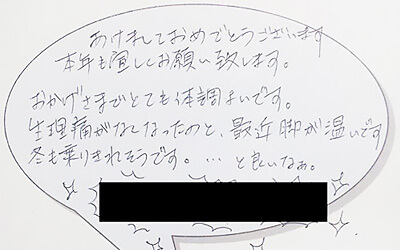 あけましておめでとうございます
本年も宜しくお願い致します。
おかげさまでとても体調よいです。
生理痛がなくなったのと、最近脚が温いです
冬も乗りきれそうです。… と良いなぁ。